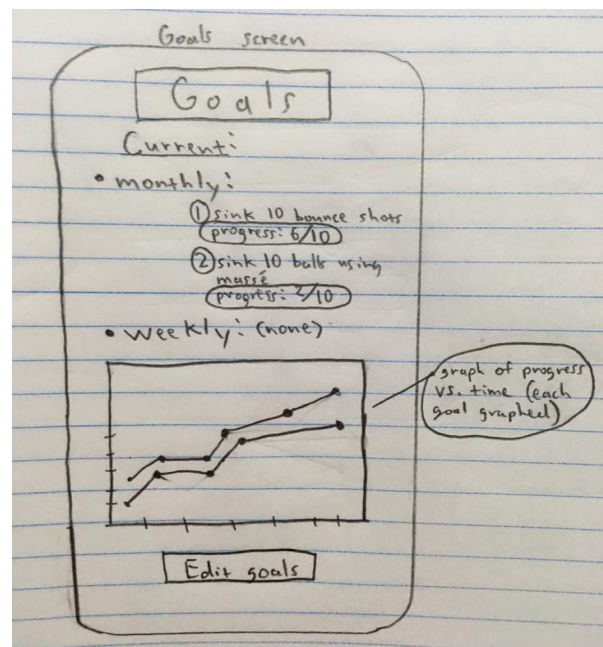 Goals screen
Goals
Current:
• monthly:
① sink 10 bounce shots
progress: 6/10
② sink 10 balls using
massé
progress: 2/10
• weekly: (none)
graph of progress
vs. time (each
goal graphed)
Edit goals